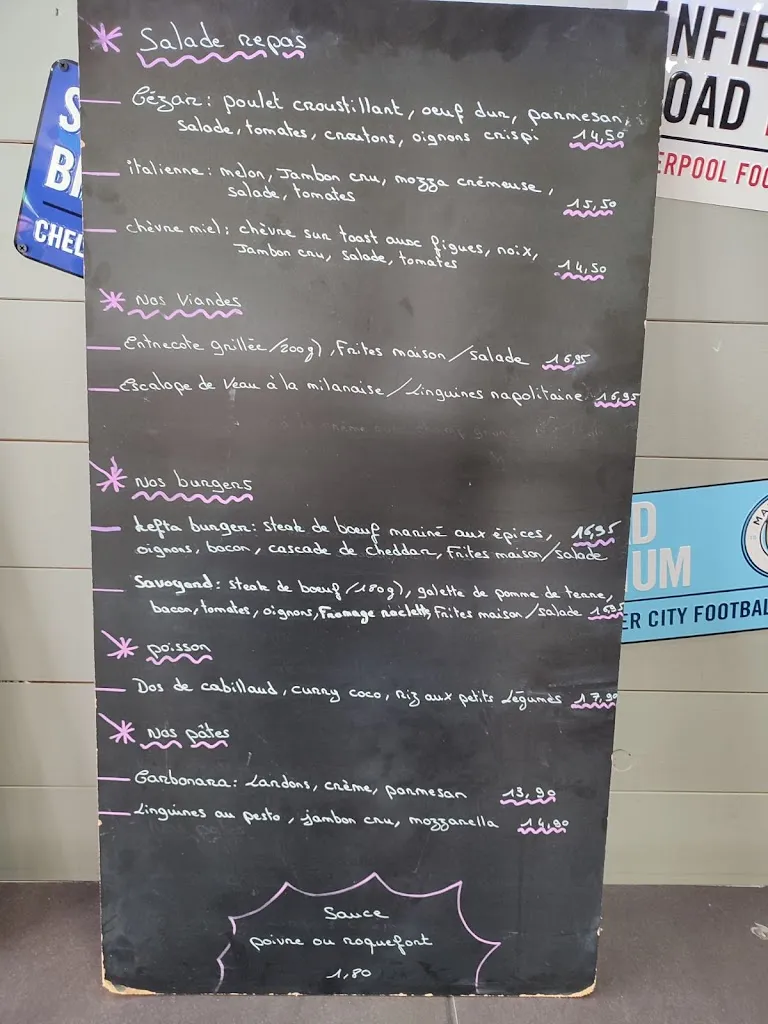 Salade repas
Cézar : poulet croustillant, oeuf dur, parmesan,
salade, tomates, croutons, oignons crispi 14,50
italienne : melon, Jambon cru, mozza crémeuse,
salade, tomates 15,50
chèvre miel : chèvre sur toast avec figues, noix,
Jambon cru, salade, tomates 14,50
Nos Viandes
Entrecote grillée/200g), Frites maison/salade 16,95
Escalope de Veau à la milanaise/Linguines napolitaine 16,95
Nos burgers
kefta burger : steak de bœuf mariné aux épices, 16,95
oignons, bacon, cascade de cheddar, Frites maison/salade
Savoyard : steak de boeuf/180g), galette de pomme de terre,
bacon, tomates, oignons, Fromage raclette, Frites maison/salade 16,95
poisson
Dos de cabillaud, curry coco, riz aux petits légumes 17,90
Nos pâtes
Carbonara : Lardons, crème, parmesan 13,90
Linguines au pesto, jambon cru, mozzarella 14,90
Sauce
poivre ou roquefort
1,80
ANFIE
OAD
ERPOOL FOO
S
B
CHEL
D
UM
ER CITY FOOTBAL
MA